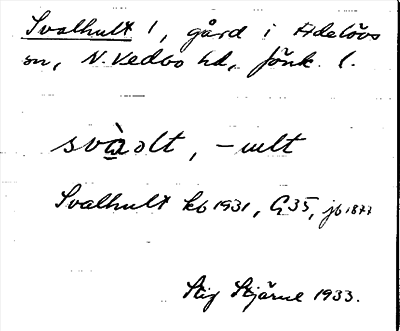 Svalhult 1, gård i Adelövs
sn, N. Vedbo hd, Jönk. l.
svàolt, -ult
Svalhult kb 1931, G35, jb 1877
Stig Stjärne 1933.